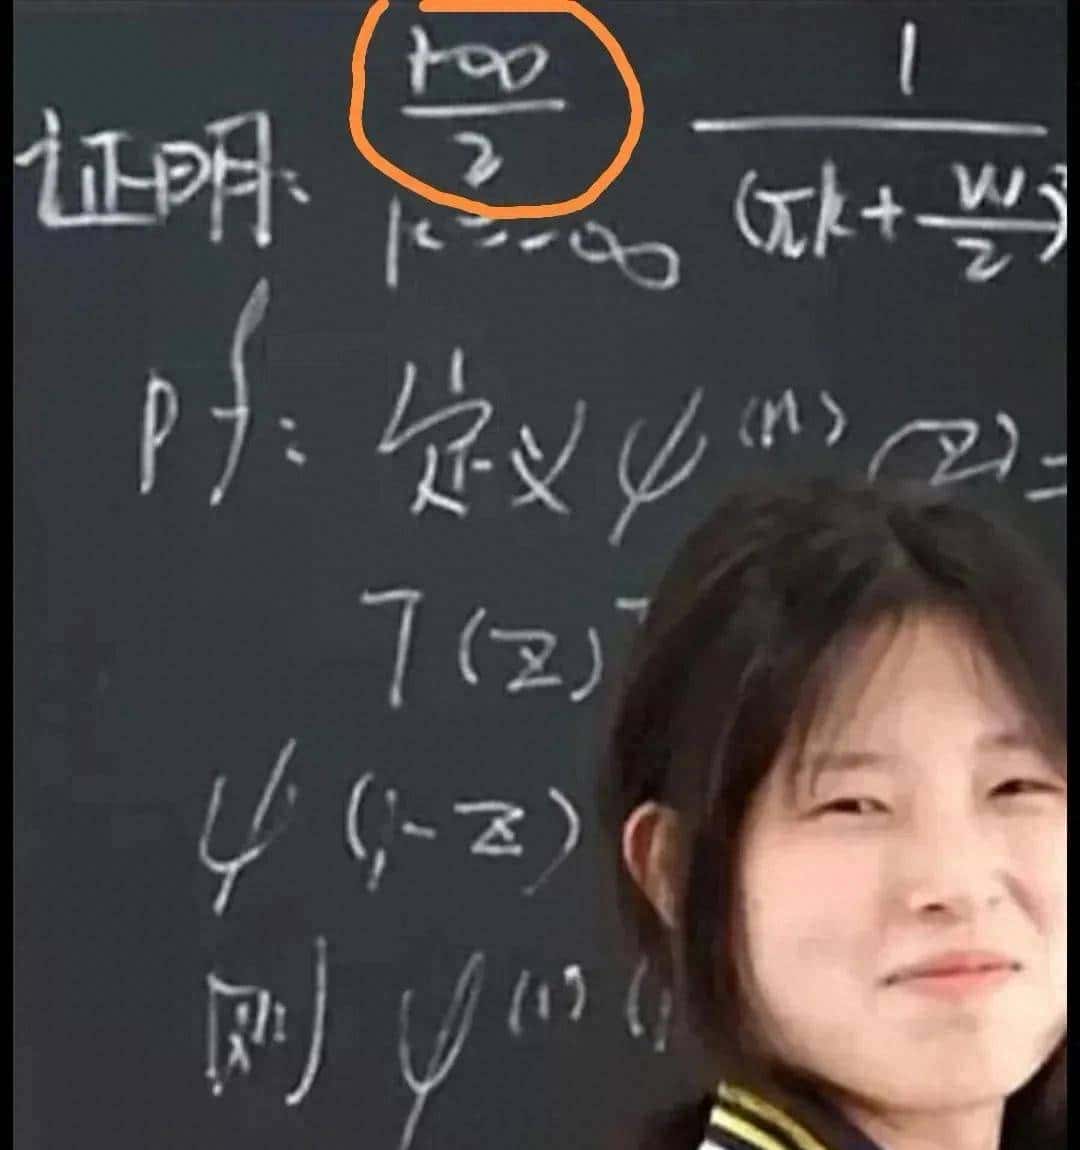 证明: +∞/2 k=-∞ 1/(πk+w/2)²
pf: 定义 ψ⁽ⁿ⁾(z)=
T(z)
ψ(1-z)
则 ψ⁽¹⁾(